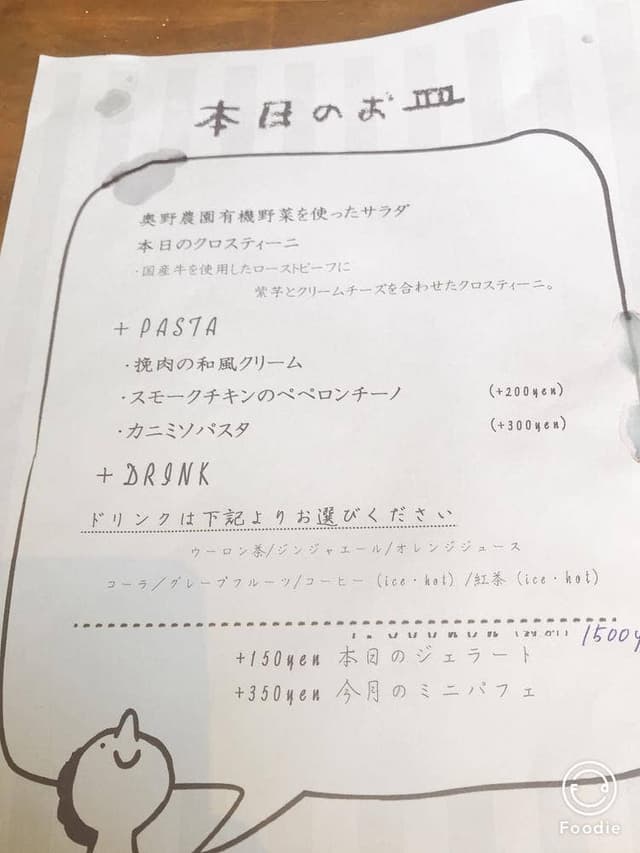 本日のお皿
奥野農園有機野菜を使ったサラダ
本日のクロスティーニ
・国産牛を使用したローストビーフに
紫芋とクリームチーズを合わせたクロスティーニ。
+ PASTA
・挽肉の和風クリーム
・スモークチキンのペペロンチーノ (+200yen)
・カニミソパスタ (+300yen)
+ DRINK
ドリンクは下記よりお選びください
ウーロン茶/ジンジャエール/オレンジジュース
コーラ/グレープフルーツ/コーヒー (ice・hot) /紅茶 (ice・hot)
1500y
+150yen 本日のジェラート
+350yen 今月のミニパフェ
Foodie